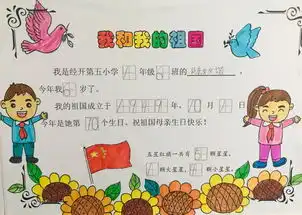 我和我的祖国
我是经开第五小学 年级 班的 ,
今年我 岁了。
我的祖国成立于 1949 年、10 月 1 日
今年是她第 70 个生日、祝祖国母亲生日快乐!
五星红旗一共有 5 颗星星,
颗大星星, 4 颗小星星。